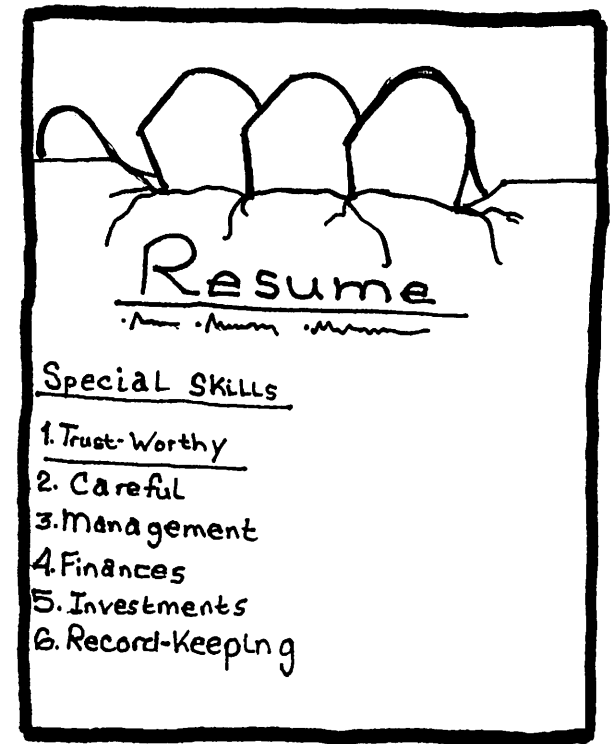 Resume
Special Skills
1. Trust-Worthy
2. Careful
3. Management
4. Finances
5. Investments
6. Record-Keeping